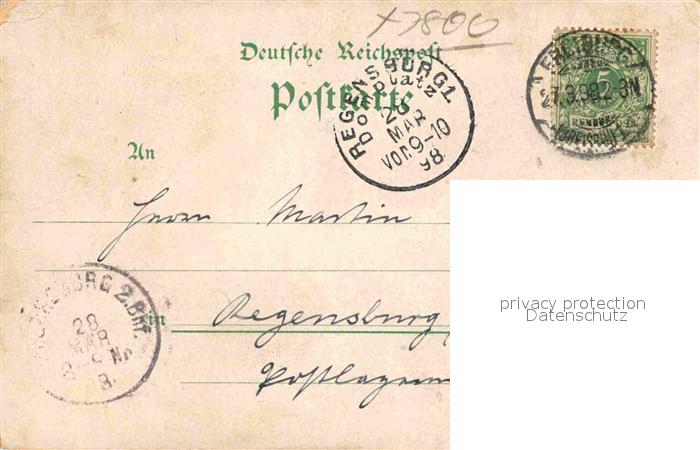 +7800
Deutsche Reichspost
Postkarte
REGENSBURG 1.
Domplatz
28
MAR
VOR. 9-10
98
FREIBURG
27.3.98. 2-3N
(BREISGAU)
5
An
Herrn Martin
REGENSBURG 2.Bhf.
28
MAR
in Regensburg
Postlagern
privacy protection
Datenschutz